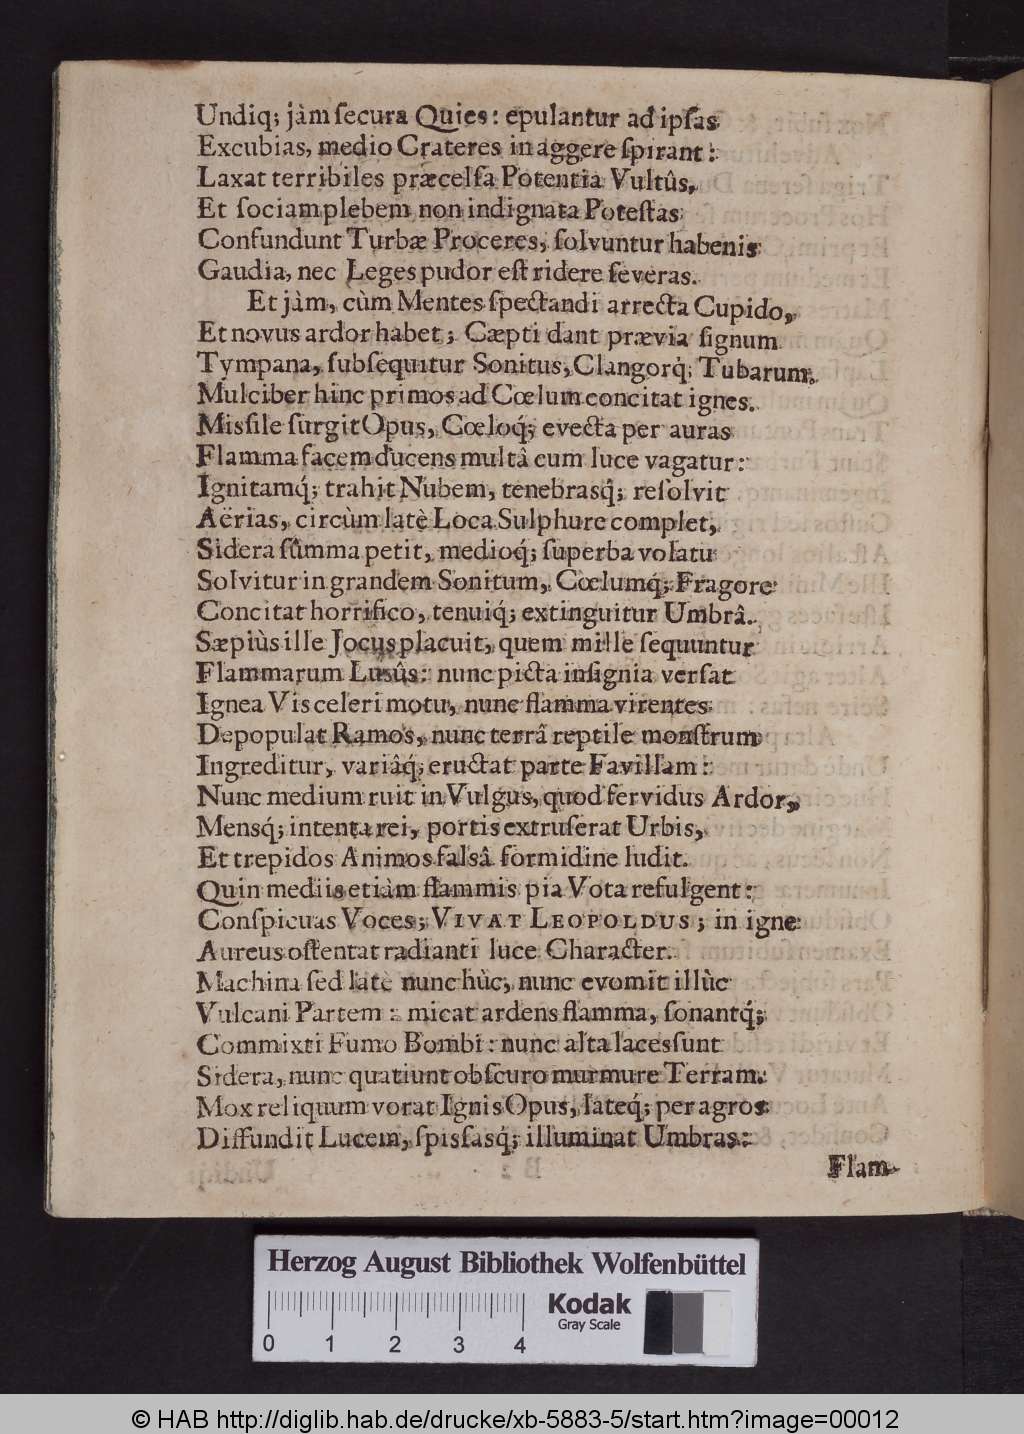 Undiq; jàm ſecura Quies: epulantur ad ipſas
Excubias, medio Crateres in aggere ſpirant:
Laxat terribiles præcelſa Potentia Vultûs,
Et ſociam plebem non indignata Poteſtas
Confundunt Turbæ Proceres, ſolvuntur habenis
Gaudia, nec Leges pudor eſt ridere ſeveras.
Et jàm, cùm Mentes ſpectandi arrecta Cupido,
Et novus ardor habet; Cæpti dant prævia ſignum
Tympana, ſubſequitur Sonitus, Clangorq́; Tubarum.
Mulciber hinc primos ad Cœlum concitat ignes.
Misſile ſurgit Opus, Cœloq́; evecta per auras
Flamma facem ducens multâ cum luce vagatur:
Ignitamq́; trahit Nubem, tenebrasq́; reſolvit
Aërias, circùm latè Loca Sulphure complet,
Sidera ſumma petit, medioq́; ſuperba volatu
Solvitur in grandem Sonitum, Cœlumq́; Fragore
Concitat horrifico, tenuiq́; extinguitur Umbrâ.
Sæpiùs ille Jocus placuit, quem mille ſequuntur
Flammarum Lusûs: nunc picta inſignia verſat
Ignea Vis celeri motu, nunc flamma virentes
Depopulat Ramos, nunc terrâ reptile monſtrum
Ingreditur, variâq́; eructat parte Favillam:
Nunc medium ruit in Vulgus, quod fervidus Ardor,
Mensq́; intenta rei, portis extruſerat Urbis,
Et trepidos Animos falsâ formidine ludit.
Quin mediis etiàm flammis pia Vota refulgent:
Conſpicuas Voces; VIVAT LEOPOLDUS; in igne
Aureus oſtentat radianti luce Character.
Machina ſed late nunc hùc, nunc evomit illùc
Vulcani Partem: micat ardens flamma, ſonantq́;
Commixti Fumo Bombi: nunc alta lacesſunt
Sidera, nunc quatiunt obſcuro murmure Terram.
Mox reliquum vorat Ignis Opus, lateq́; per agros
Diffundit Lucem, ſpisſasq́; illuminat Umbras:
Flam-
Herzog August Bibliothek Wolfenbüttel
Kodak
Gray Scale
0 1 2 3 4
© HAB http://diglib.hab.de/drucke/xb-5883-5/start.htm?image=00012